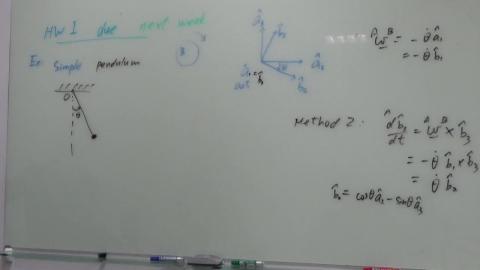 HW I due next week
Ex: Simple pendulum
O
θ
B
â₃
b̂₃
â₂
b̂₂
â₁ = b̂₁
out
ᴬω̲ᴮ = -θ̇ â₁
= -θ̇ b̂₁
Method 2: ᴬdb̂₃/dt = ᴬω̲ᴮ × b̂₃
= -θ̇ b̂₁ × b̂₃
= θ̇ b̂₂
b̂₂ = cosθ â₂ - sinθ â₃